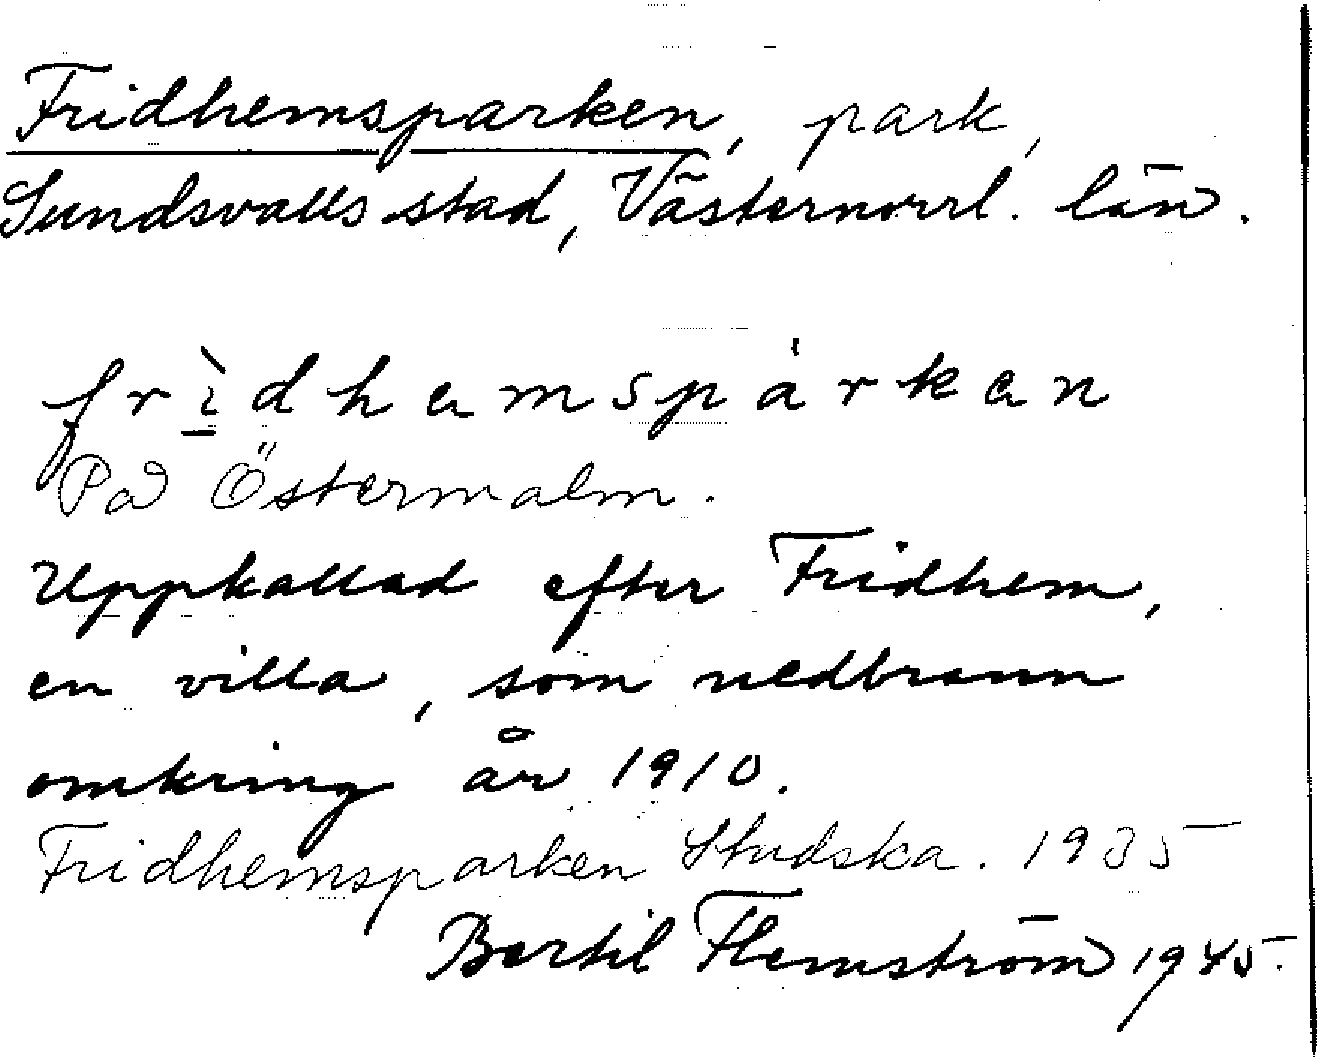 Fridhemsparken, park,
Sundsvalls stad, Västernorrl. län.
frìdhemspàrken
På Östermalm.
Uppkallad efter Fridhem,
en villa, som nedbrann
omkring år 1910.
Fridhemsparken Stadska. 1935
Bertil Flemström 1945.